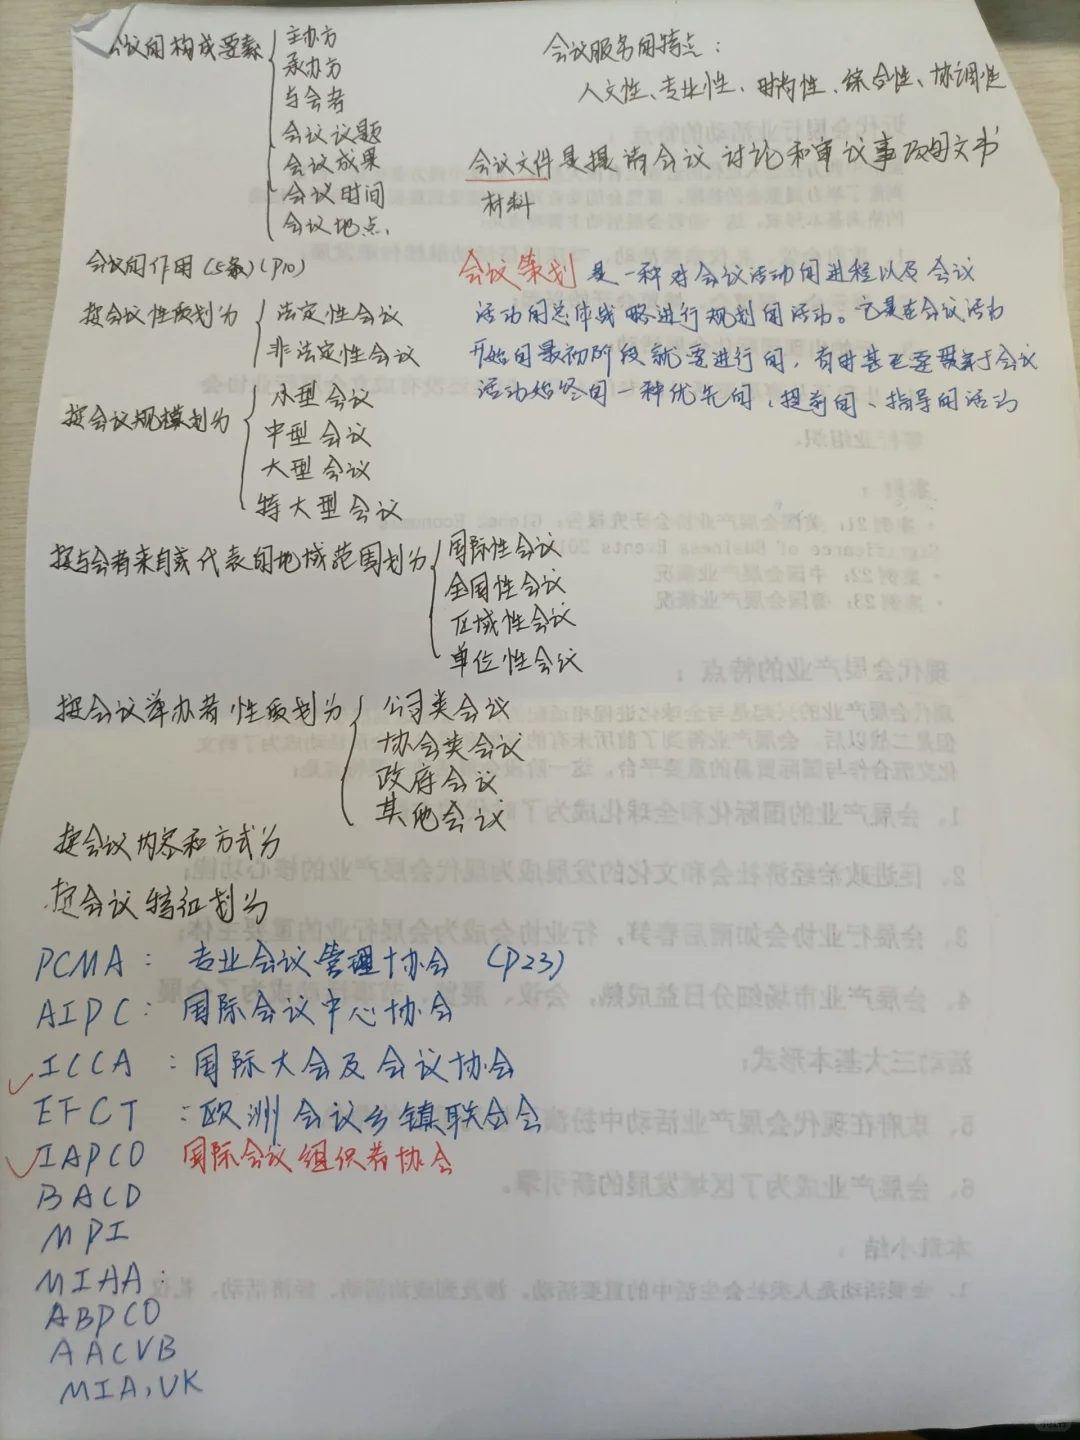 会议的构成要素
主办方
承办方
与会者
会议议题
会议成果
会议时间
会议地点.
会议的作用(5条)(P10)
按会议性质划为
法定性会议
非法定性会议
按会议规模划为
小型会议
中型会议
大型会议
特大型会议
按与会者来自或代表的地域范围划为
国际性会议
全国性会议
区域性会议
单位性会议
按会议举办者性质划为
公司类会议
协会类会议
政府会议
其他会议
按会议内容和方式为
按会议特征划为
PCMA: 专业会议管理协会 (P23)
AIPC: 国际会议中心协会
ICCA: 国际大会及会议协会
EFCT: 欧洲会议乡镇联合会
IAPCO 国际会议组织者协会
BACD
MPI
MIAA:
ABPCO
AACVB
MIA,UK
会议服务的特点:
人文性、专业性、时尚性、综合性、协调性
会议文件是提请会议讨论和审议事项的文书
材料
会议策划是一种对会议活动的进程以及会议
活动的总体战略进行规划的活动。它是在会议活动
开始的最初阶段就要进行的,有时甚至要贯穿于会议
活动始终的一种优先的、提前的、指导的活动